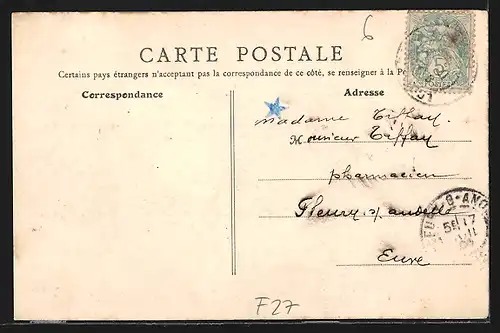 6
CARTE POSTALE
Certains pays étrangers n'acceptant pas la correspondance de ce côté, se renseigner à la
Correspondance
Adresse
Madame Tiffay.
Monsieur Tiffay
pharmacien
Fleury s/ andelle
Eure
F27